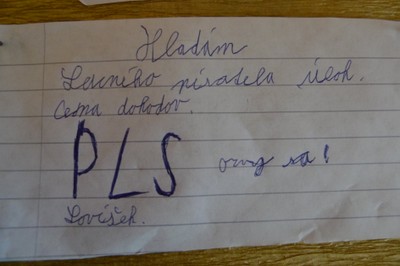 Hladám
Lacného pisatela úloh.
Cena dohodov.
PLS ozvy sa!
Lovíšek.